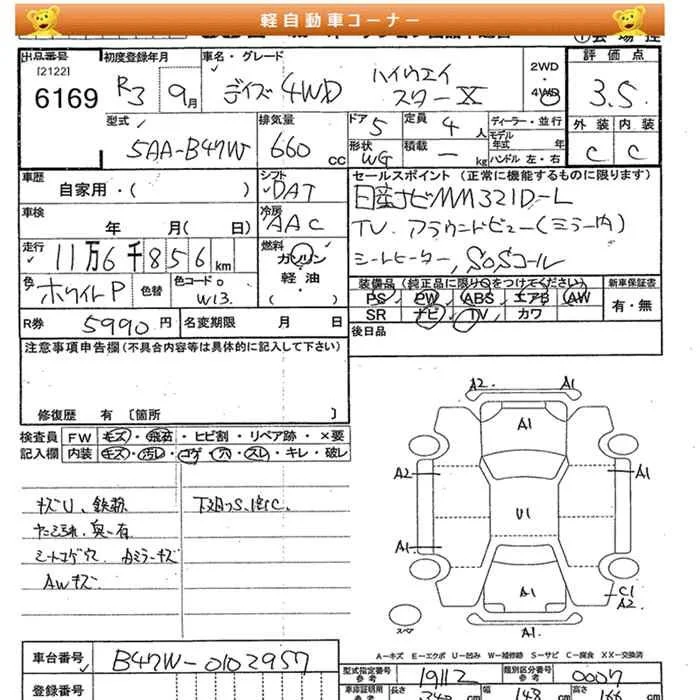 軽自動車コーナー
出品番号 初度登録年月 車名・グレード 2WD 評価点
[2122] 6169 R3 9月 デイズ 4WD ハイウェイスターX ・4WD 3.5
型式 排気量 ドア 5 定員 4人 ディーラー・並行 外装 内装
5AA-B47W 660cc 形状 WG 積載 ー kg モデル年式 年 ハンドル 左・右 C C
車歴 シフト セールスポイント(正常に機能するものに限ります)
自家用・( ) DAT 日産ナビMM321D-L
車検 冷房 TV. アラウンドビュー(ミラー内)
年 月(日) AAC
走行 11万6千856km 燃料 ガソリン シートヒーター, SOSコール
軽・油
( )
色 ホワイトP 色替 色コード W13. 装備品(純正品に限り○をつけてください) 新車保証書
PS PW ABS エアB AW 有・無
R券 5990円 名変期限 月 日 SR ナビ TV カワ
注意事項申告欄(不具合内容等は具体的に記入して下さい) 後日品
修復歴 有〔箇所 〕
検査員 FW キズ・飛石・ヒビ割・リペア跡・×要
記入欄 内装 キズ・汚れ・コゲ・穴・スレ・キレ・破レ
キズU、鉄粉
シートコゲ穴 Aミラーキズ
AWキズ
下廻りS、錆C.
A2. A1
A1
A2 A1
U1
A1
C1
A1 A2.
A1
スペア
A-キズ E-エクボ U-凹み W-補修跡 S-サビ C-腐食 XX-交換済
車台番号 B47W-0102957 型式指定番号 参考 19112 類別区分番号 参考 0007
登録番号 車庫証明用 長さ cm 幅 148 cm 高さ 166 cm